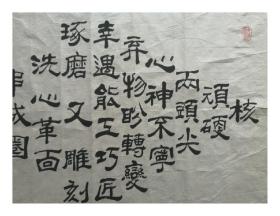 核
頑硬
兩頭尖
心神不寧
弃物盼轉變
幸遇能工巧匠
琢磨又雕刻
洗心革面
串成圈